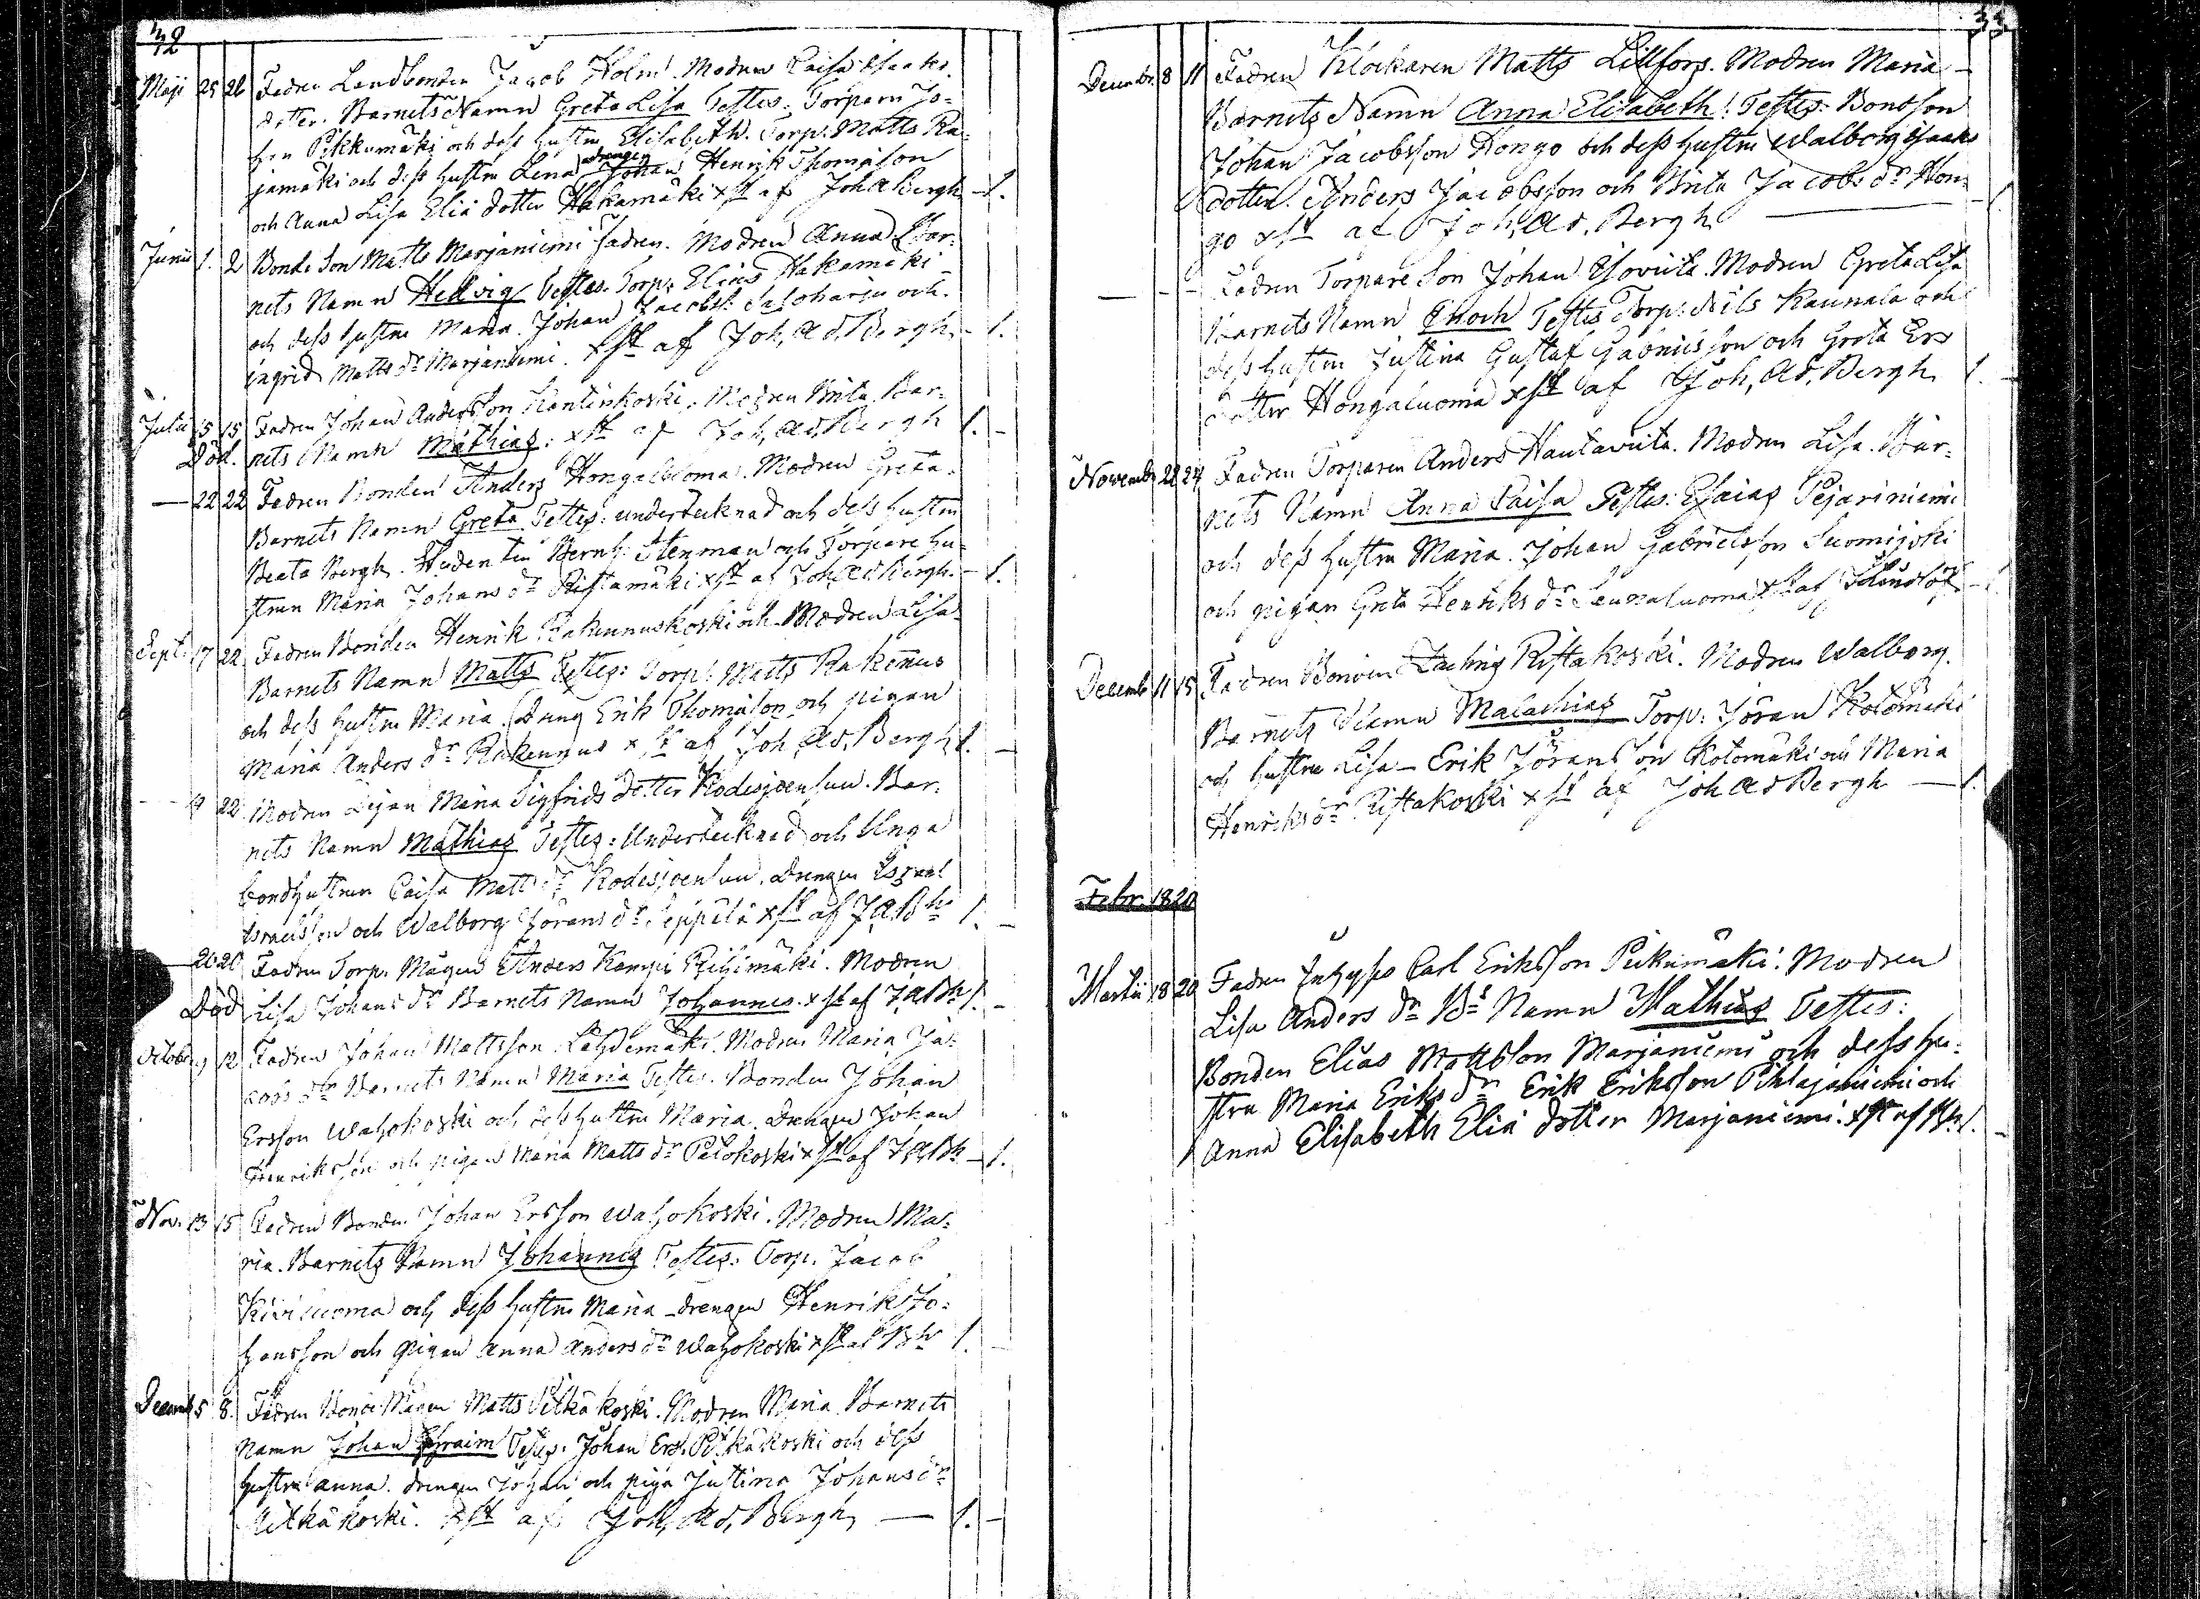 32
Maji 25 26 Fadren Landbonden Jacob Holm. Modren Caisa Isaaks
dotter. Barnets Namn Greta Lisa Testes: Torparn Jo=
han Pikkumäki och dess hustru Elisabeth. Torp: Matts Ra=
jamäki och dess hustru Lena drengen Johan Henrik Thomasson
och Anna Lisa Elia dotter Hakamäki xst af Joh Ad Bergh — 1.
Junii 1. 2 Bonde Son Matts Marjaniemi fadren. Modren Anna Bar=
nets Namn Hedvig Testes. Torp: Elias Hakamäki
och dess hustru Maria. Johan Jacobss. Saloharju och
ingrid Matts dr Marjaniemi. xst af Joh, Ad, Bergh. — 1.
Julii 15 15 Fadren Johan Andersson Kantinkoski, Modren Brita. Bar=
Död. nets Namn Mathias: xst af Joh, Ad, Bergh 1. -
— 22 22 Fadren Bonden Anders Hongaluoma. Modren Greta.
Barnets Namn Greta Testes: undertecknad och dess hustru
Beata Bergh. Studenten Bernh: Stenman och Torpare hu=
strun Maria Johans dr Ristamäki xst af Joh Ad Bergh. — 1.
Sept: 17 22 Fadren Bonden Henrik Rakennuskoski och Modren Lisa
Barnets Namn Matts Testes: Torp: Matts Rakennus
och dess hustru Maria. Dreng Erik Thomasson och pigan
Maria Anders dr Rakennus xst af Joh, Ad, Bergh 1. —
- - 19 22 Modren Lejan Maria Sigfrids dotter Kodesjoensuu. Bar=
nets Namn Mathias Testes: Undertecknad och Unga
bondhustrun Caisa Matts dr Kodesjoensuu. Drengen Israel
Israelsson och Walborg Jörans dr Seppälä xst af J A Bh 1. -
— 20 20 Fadren Torp. Mågen Anders Kampi Riihimäki. Modren
Död Lisa Johans dr Barnets Namn Johannes. xst af J A Bh 1. -
October 9 12 Fadren Johan Mattsson Lähdemäki. Modren Maria Ja=
cobs dr Barnets Namn Maria Testes. Bonden Johan
Ersson Wahokoski och dess hustru Maria. Drengen Johan
Henriksson och pigan Maria Matts dr Palokoski xst af J A Bh — 1.
Nov. 13 15 Fadren Bonden Johan Ersson Wahokoski. Modren Ma=
ria. Barnets Namn Johannes Testes: Torp. Jacob
Kiviluoma och dess hustru Maria - drengen Henrik Jo=
hansson och Pigan Anna Anders dr Wahokoski xst af Bh 1. -
Decemb 5 8. Fadren Bonde Mågen Matts Pitkäkoski. Modren Maria Barnets
Namn Johan Efraim Testes: Johan Ers. Pitkäkoski och dess
hustru Anna. drengen Johan och piga Justina Johans dr
Pitkäkoski. xst af Joh, Ad, Bergh — 1. -
33
Decembr. 8 11 Fadren Klockaren Matts Lillfors. Modren Maria —
Barnets Namn Anna Elisabeth. Testes: Bondson
Johan Jacobsson Hongo och dess hustru Walborg Isaaks
dotter. Anders Jacobsson och Brita Jacobs dr Hon=
go xst af Joh, Ad, Bergh — 1.
— - - Fadren Torpare Son Johan Isoviita. Modren Greta Lisa
Barnets Namn Enoch Testes Torp: Nils Kaunala och
dess hustru Justina Gustaf Gabrielsson och Greta Ers
dotter Hongaluoma xst af Joh, Ad, Bergh 1. -
Novembr 22 24 Fadren Torparen Anders Hautaviita. Modren Lisa. Bar=
nets Namn Anna Caisa Testes: Esaias Pejariniemi
och dess hustru Maria. Johan Gabrielsson Suomijoki
och pigan Greta Henriks dr Leunaluoma xst af — 1
Decemb 11 15 Fadren Bonden Zachris Ristakoski. Modren Walborg.
Barnets Namn Malachias Torp: Jöran Kotomäki
och hustru Lisa - Erik Jöransson Kotomäki och Maria
Henriks dr Ristakoski xst af Joh Ad Bergh — 1.
Febr. 1820
Martii 18 20 Fadren Inhyses Carl Eriksson Pikkumäki. Modren
Lisa Anders dr Bs Namn Mathias Testes:
Bonden Elias Mattsson Marjaniemi och dess hu=
stru Maria Eriks dr Erik Eriksson Pihlajaniemi och
Anna Elisabeth Elia dotter Marjaniemi. xst af Bh 1. -